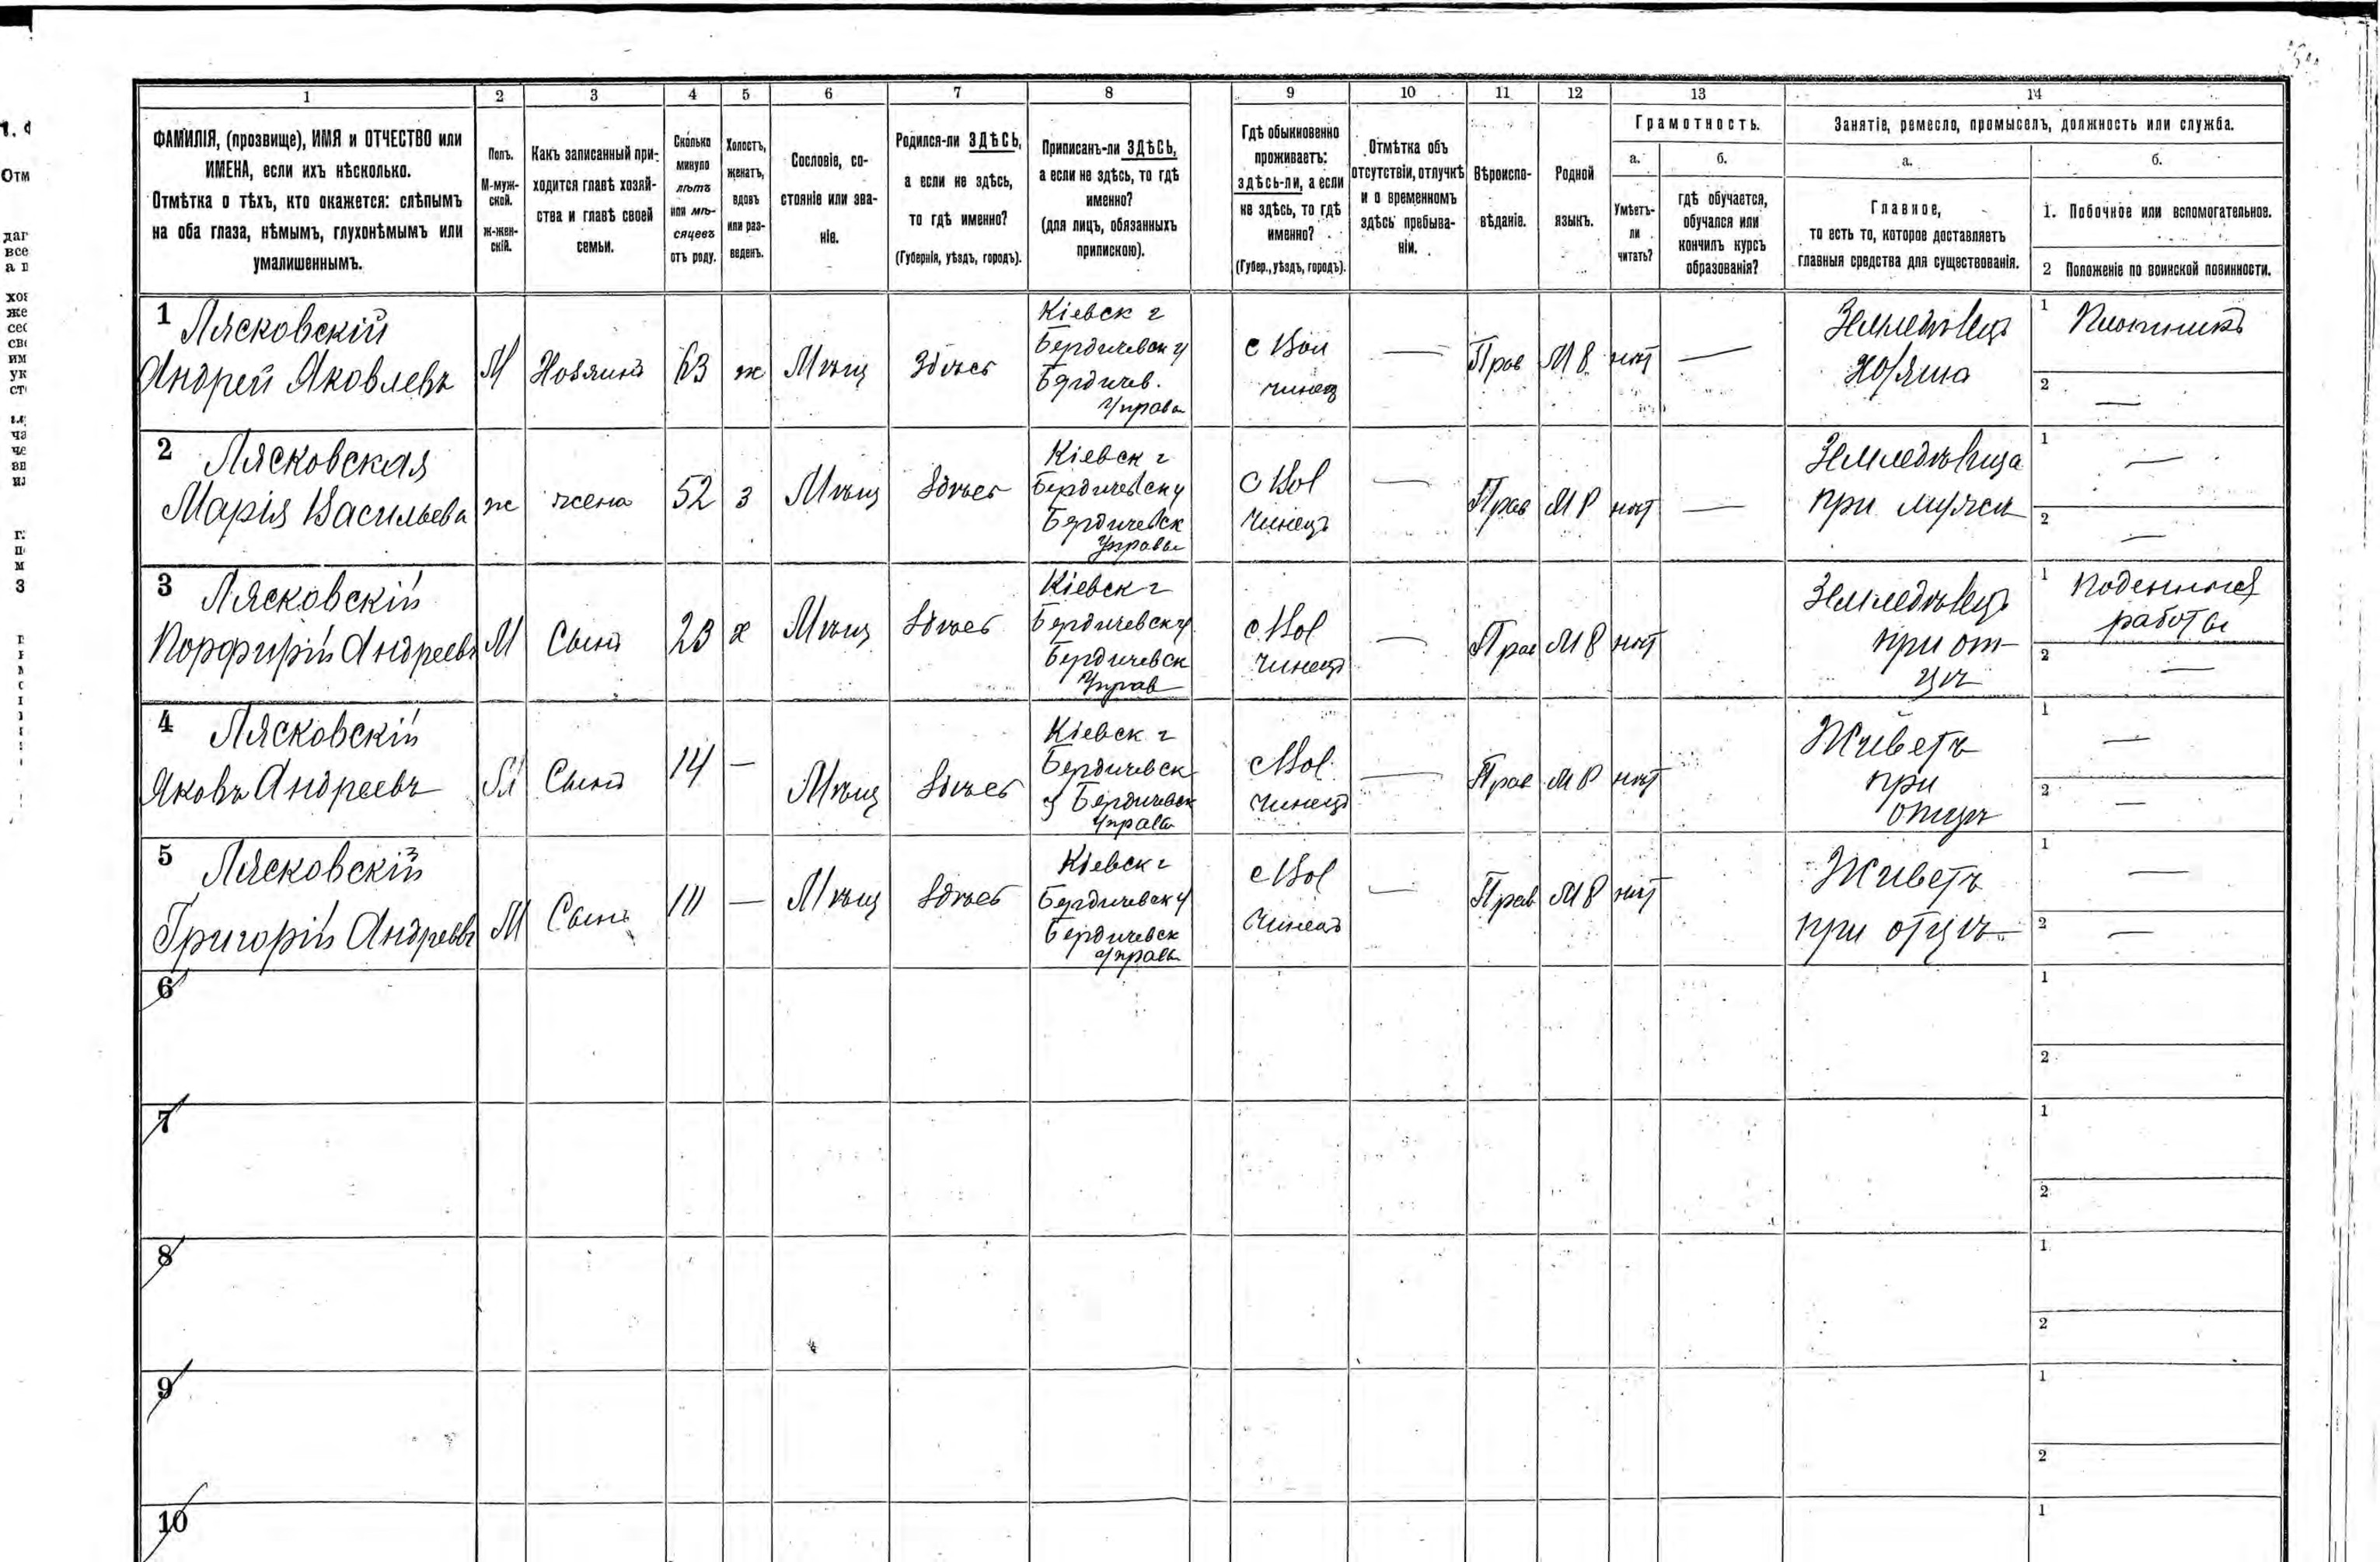 1 2 3 4 5 6 7 8 9 10 11 12 13 14
ФАМИЛІЯ, (прозвище), ИМЯ и ОТЧЕСТВО или
ИМЕНА, если ихъ нѣсколько.
Отмѣтка о тѣхъ, кто окажется: слѣпымъ
на оба глаза, нѣмымъ, глухонѣмымъ или
умалишеннымъ.
Полъ.
М-муж-
ской.
ж-жен-
скій.
Какъ записанный при-
ходится главѣ хозяй-
ства и главѣ своей
семьи.
Сколько
минуло
лѣтъ
или мѣ-
сяцевъ
отъ роду.
Холостъ,
женатъ,
вдовъ
или раз-
веденъ.
Сословіе, со-
стояніе или зва-
ніе.
Родился-ли ЗДѢСЬ,
а если не здѣсь,
то гдѣ именно?
(Губернія, уѣздъ, городъ).
Приписанъ-ли ЗДѢСЬ,
а если не здѣсь, то гдѣ
именно?
(для лицъ, обязанныхъ
припискою).
Гдѣ обыкновенно
проживаетъ:
здѣсь-ли, а если
не здѣсь, то гдѣ
именно?
(Губер., уѣздъ, городъ).
Отмѣтка объ
отсутствіи, отлучкѣ
и о временномъ
здѣсь пребыва-
ніи.
Вѣроиспо-
вѣданіе.
Родной
языкъ.
Грамотность.
а.
Умѣетъ-
ли
читать?
б.
гдѣ обучается,
обучался или
кончилъ курсъ
образованія?
Занятіе, ремесло, промыселъ, должность или служба.
а.
Главное,
то есть то, которое доставляетъ
главныя средства для существованія.
б.
1. Побочное или вспомогательное.
2 Положеніе по воинской повинности.
1 Лясковскій
Андрей Яковлевъ
М
Хозяинъ
63
ж
Мѣщ
Здѣсь
Кіевск г
Бердичевск у
Бердичев.
Управа
чинец
—
Прав
М Р
нѣт
—
Земледѣлецъ
хозяинъ
1 Плотникъ
2 —
2 Лясковская
Марія Васильева
ж
жена
52
з
Мѣщ
Здѣсь
Кіевск г
Бердичевск у
Бердичевск
Управы
с Вол
Чинецъ
—
Прав
М Р
нѣт
—
Земледѣлица
при мужѣ
1 —
2 —
3 Лясковскій
Порфирій Андреевъ
М
Сынъ
23
х
Мѣщ
Здѣсь
Кіевск г
Бердичевск у
Бердичевск
Управ
с Вол
Чинецъ
—
Прав
М Р
нѣт
Земледѣлецъ
при от-
цѣ
1 Поденныя
работы
2 —
4 Лясковскій
Яковъ Андреевъ
М
Сынъ
14
—
Мѣщ
Здѣсь
Кіевск г
Бердичевск
у Бердичевск
Управы
с Вол
Чинецъ
—
Прав
М Р
нѣт
Живетъ
при
отцѣ
1 —
2 —
5 Лясковскій
Григорій Андреевъ
М
Сынъ
—
Мѣщ
Здѣсь
Кіевск г
Бердичевск у
Бердичевск
Управы
с Вол
Чинецъ
—
Прав
М Р
нѣт
Живетъ
при отцѣ
1 —
2 —
6
1
2
7
1
2
8
1
2
9
1
2
10
1